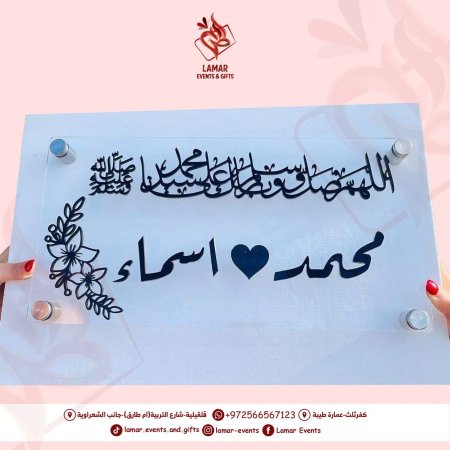 LAMAR
EVENTS & GIFTS
اللهم صل وسلم وبارك على سيدنا محمد ﷺ
محمد ♥ اسماء
كفرثلث-عمارة طيبة +972566567123 قلقيلية-شارع التربية(ام طارق)-جانب الشعراوية
lamar.events.and.gifts lamar-events Lamar Events